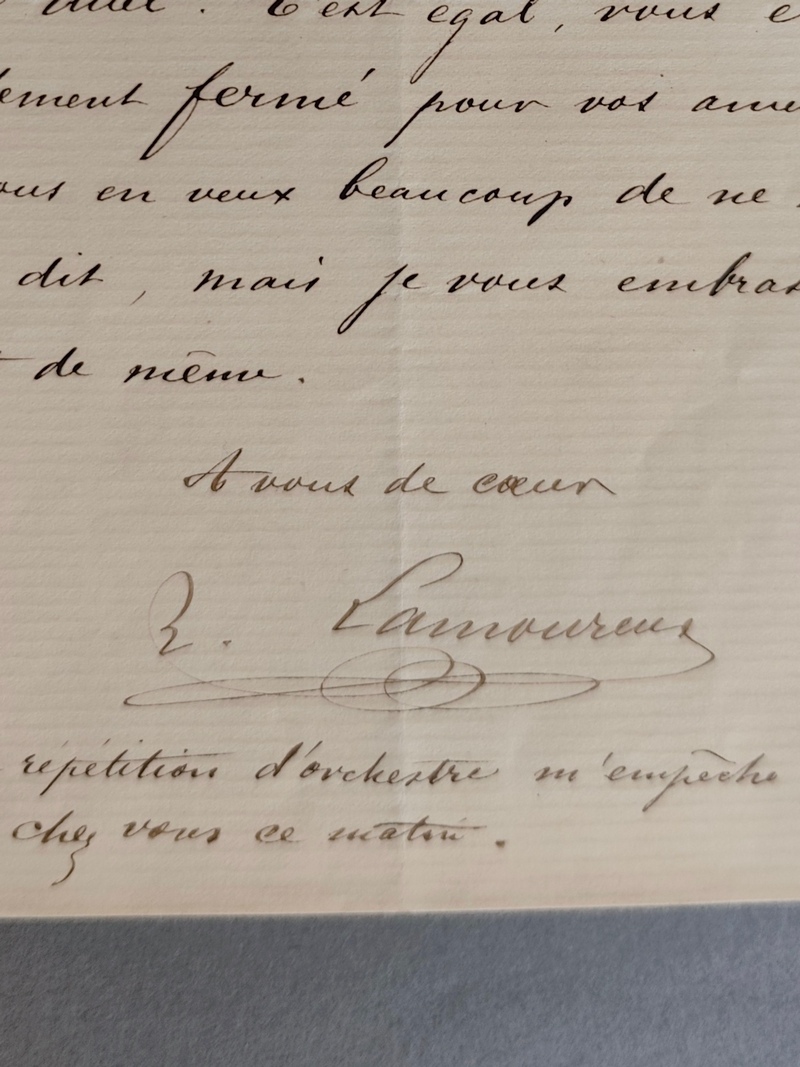 C'est égal, vous e
lement fermé pour vos ame
ous en veux beaucoup de ne
dit, mais je vous embras
t de même.
A vous de cœur
Lamoureux
répétition d'orchestre m'empêche
chez vous ce matin.